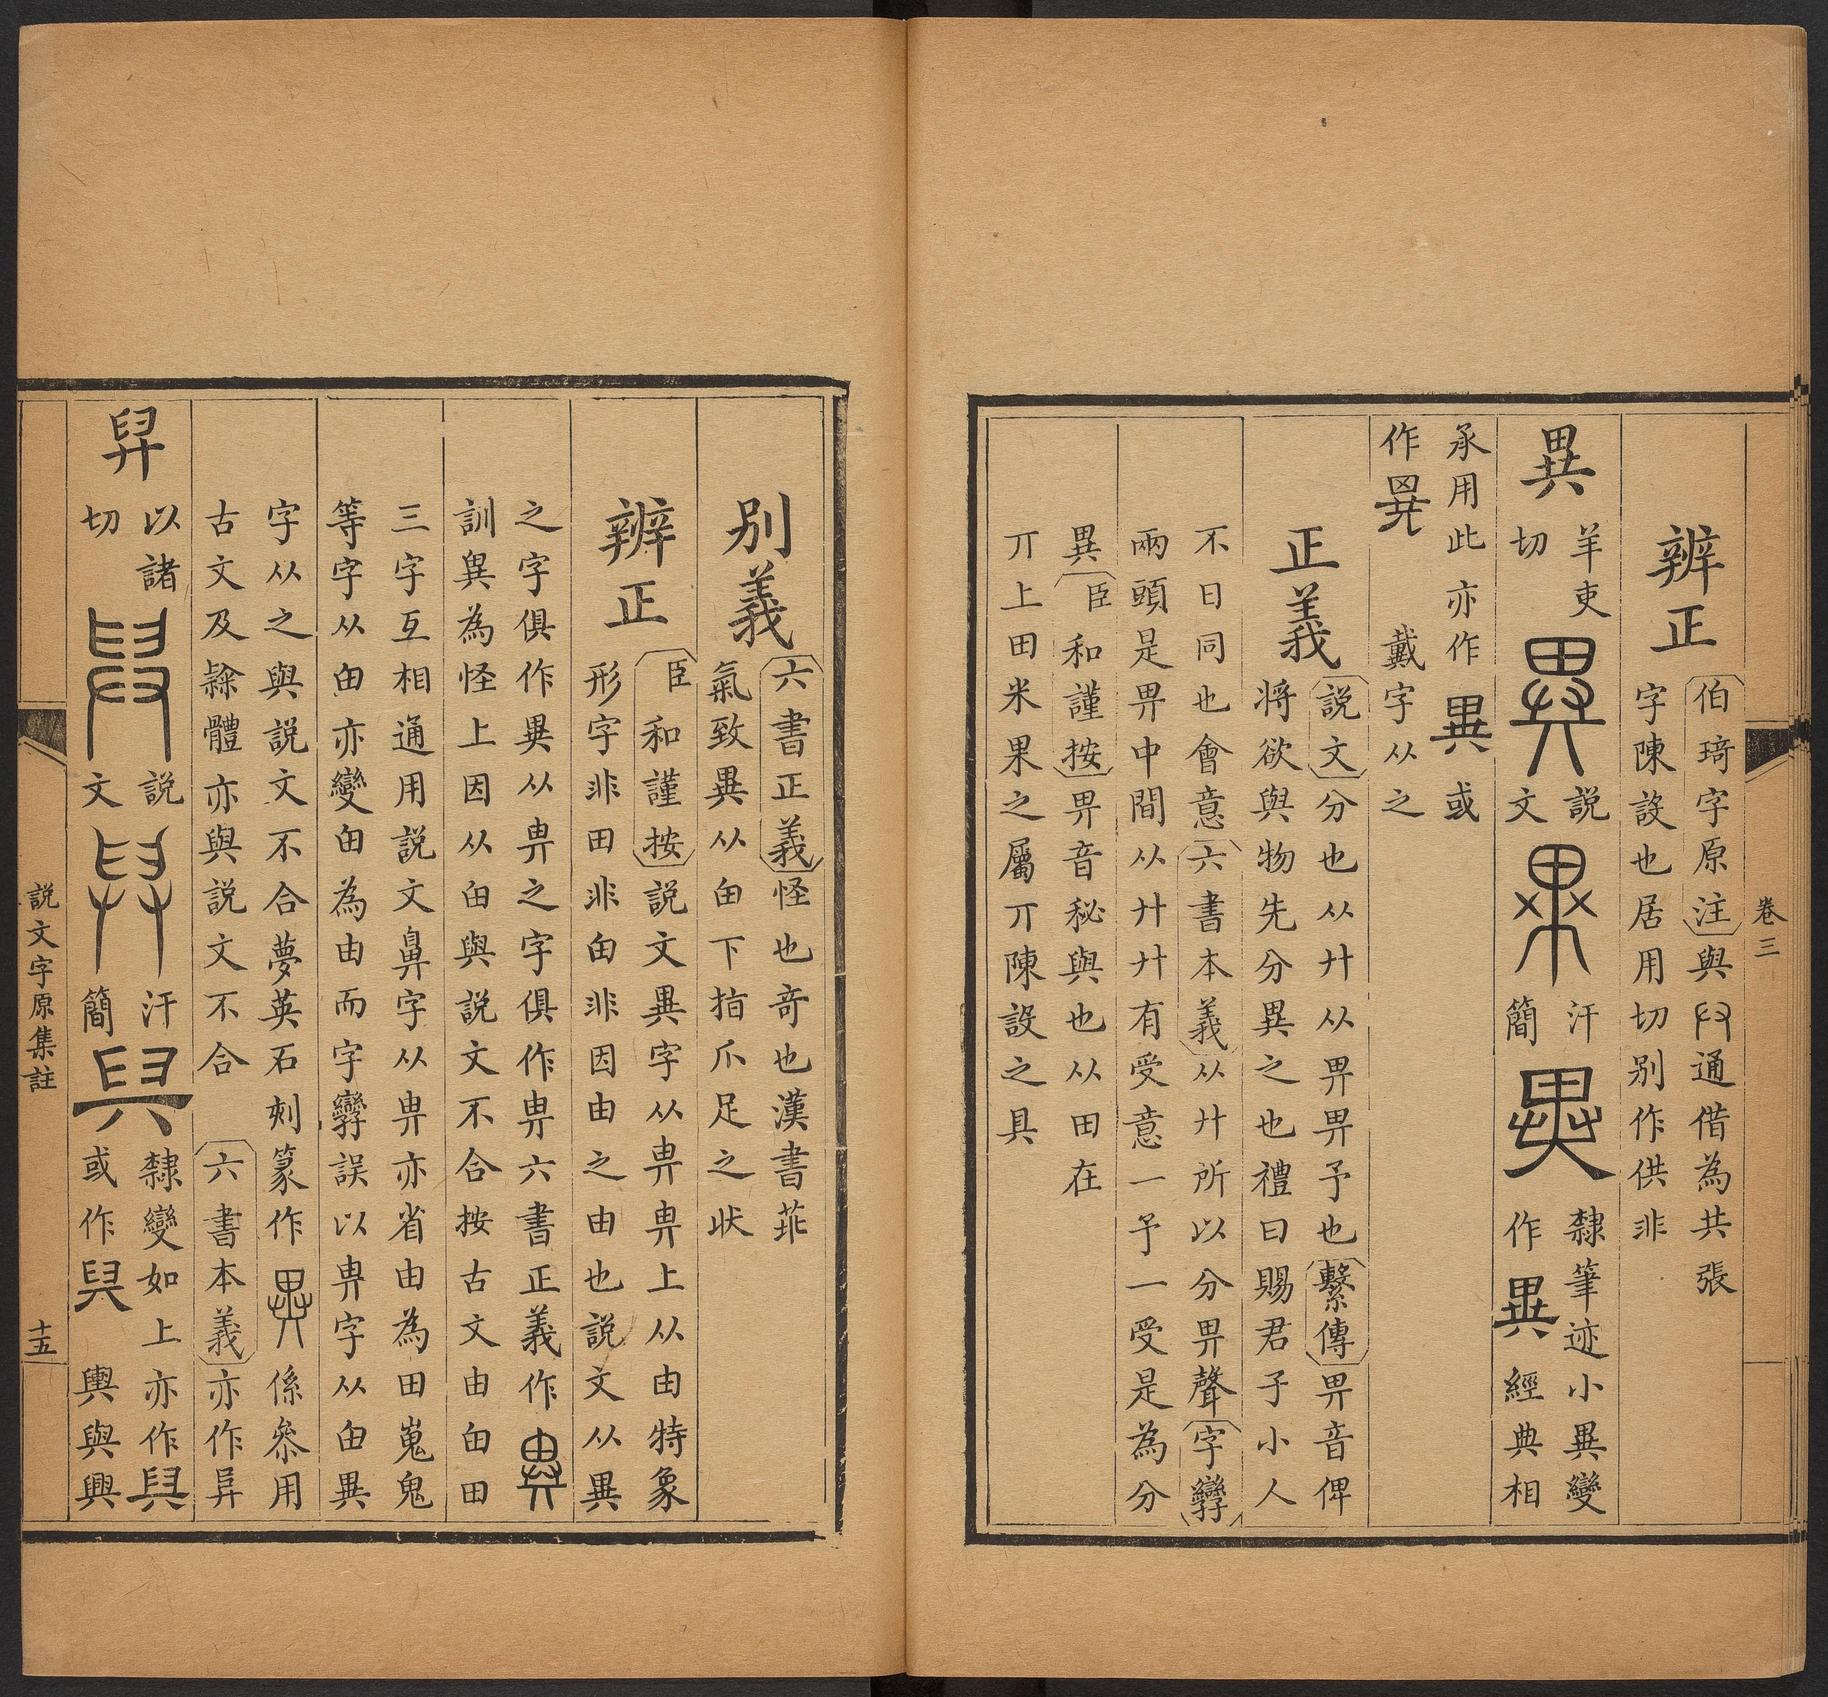 卷三
辨正
伯琦字原注與𦥑通借為共張
字陳設也居用切别作供非
異
羊吏
切
說
文
汗
簡
隸筆迹小異變
作異經典相
承用此亦作異或
作異 戴字从之
正義
說文分也从廾从畀畀予也繫傳畀音俾
將欲與物先分異之也禮曰賜君子小人
不曰同也會意六書本義从廾所以分畀聲字孿
兩頭是畀中間从廾廾有受意一予一受是為分
異臣和謹按畀音秘與也从田在
丌上田米果之屬丌陳設之具
别義
六書正義怪也奇也漢書菲
氣致異从甶下指爪足之状
辨正
臣和謹按說文異字从畁畁上从甶特象
形字非田非甶非因由之由也說文从異
之字俱作異从畁之字俱作畁六書正義作
訓異為怪上因从甶與說文不合按古文由甶田
三字互相通用說文鼻字从畁亦省由為田嵬鬼
等字从甶亦變甶為由而字孿誤以畁字从甶異
字从之與說文不合夢英石刻篆作 係叅用
古文及隸體亦與說文不合 六書本義亦作异
舁
以諸
切
說
文
汗
簡
隸變如上亦作
或作 輿與興
說文字原集註
十五